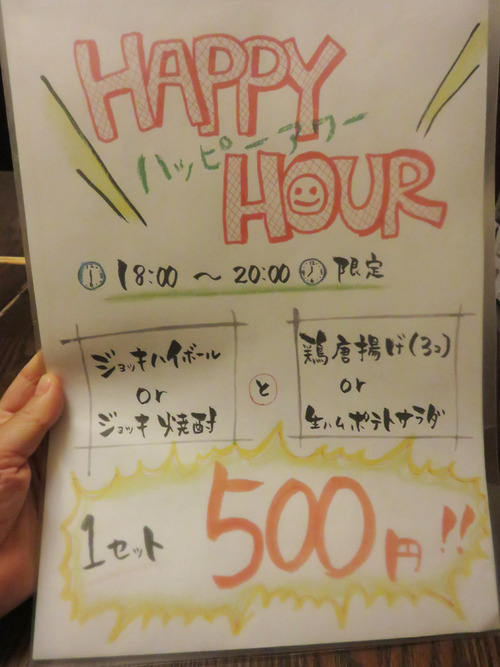 HAPPY
ハッピーアワー
HOUR
18:00 〜 20:00 限定
ジョッキハイボール
or
ジョッキ焼酎
と
鶏唐揚げ(3コ)
or
生ハムポテトサラダ
1セット 500円!!